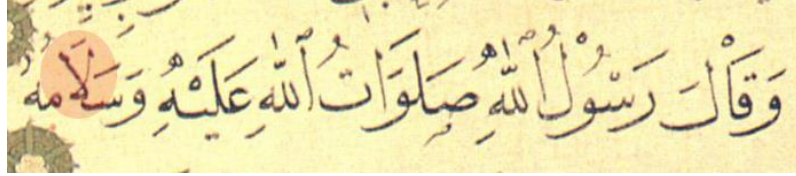 وَقَالَ رَسُوْلُ ٱللّٰهِ صَلَوَاتُ ٱللّٰهِ عَلَيْهِ وَسَلَامُهُ